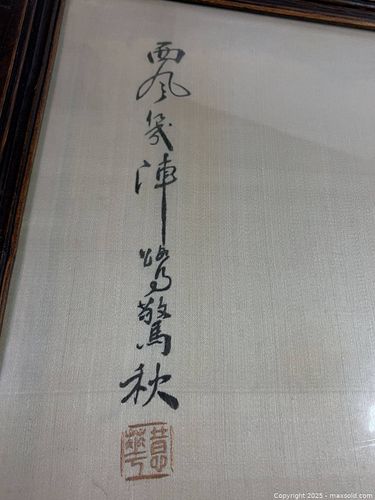 西風幾陣驚秋
Copyright 2025 - maxsold.com